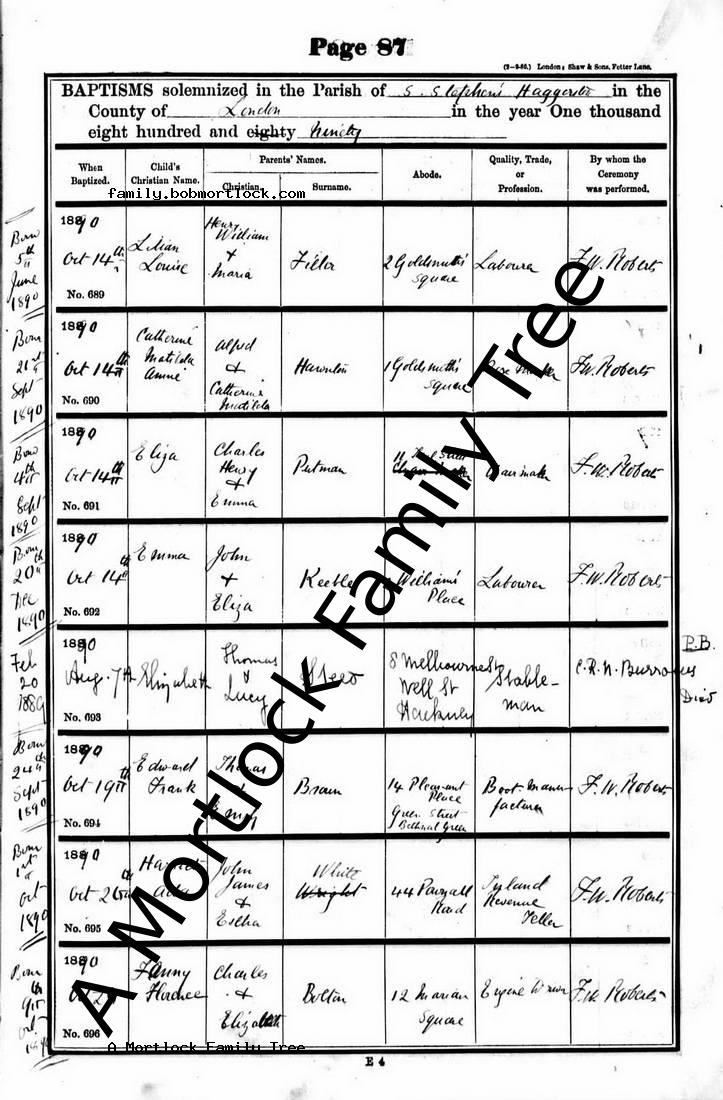 Page 87
(7-9-86.) London: Shaw & Sons, Fetter Lane.
BAPTISMS solemnized in the Parish of S. Stephen's Haggerston in the
County of London in the year One thousand
eight hundred and eighty Ninety
When Baptized. Child's Christian Name. Parents' Names. Abode. Quality, Trade, or Profession. By whom the Ceremony was performed.
Christian. Surname.
family.bobmortlock.com
Born 5th June 1890
1890 Oct 14th
No. 689
Lilian Louise
Henry William + Maria
2 Goldsmith's Square
Labourer
F.W. Roberts
Born 21st Sept 1890
1890 Oct 14th
No. 690
Catherine Matilda Annie
Alfred & Catherine Matilda
1 Goldsmith's Square
F.W. Roberts
Born 4th Sept 1890
1890 Oct 14th
No. 691
Eliza
Charles Henry + Emma
Putman
Chair maker
F.W. Roberts
Born 20th 1890
1890 Oct 14th
No. 692
Emma
John + Eliza
Keeble
Williams' Place
Labourer
F.W. Roberts
Feb 20 1889
1890 Aug. 7th
No. 693
Elizabeth
Thomas & Lucy
8 Melbourne St Well St Hackney
Stableman
C.R.N. Burrows
P.B.
Died
Born 24th Sept 1890
1890 Oct 19th
No. 694
Edward Frank
Thomas
Brown
14 Pleasant Place Green Street Bethnal Green
Boot Manufacturer
F.W. Roberts
Born 1st Oct 1890
1890 Oct 26th
No. 695
Harriet Ada
John James & Esther
White
Wright
44 Road
Inland Revenue Teller
F.W. Roberts
Born 9th Oct
1890 Oct
No. 696
Fanny Florence
Charles & Elizabeth
Bolton
12 Marian Square
Engine Driver
F.W. Roberts
A Mortlock Family Tree
A Mortlock Family Tree
E 4